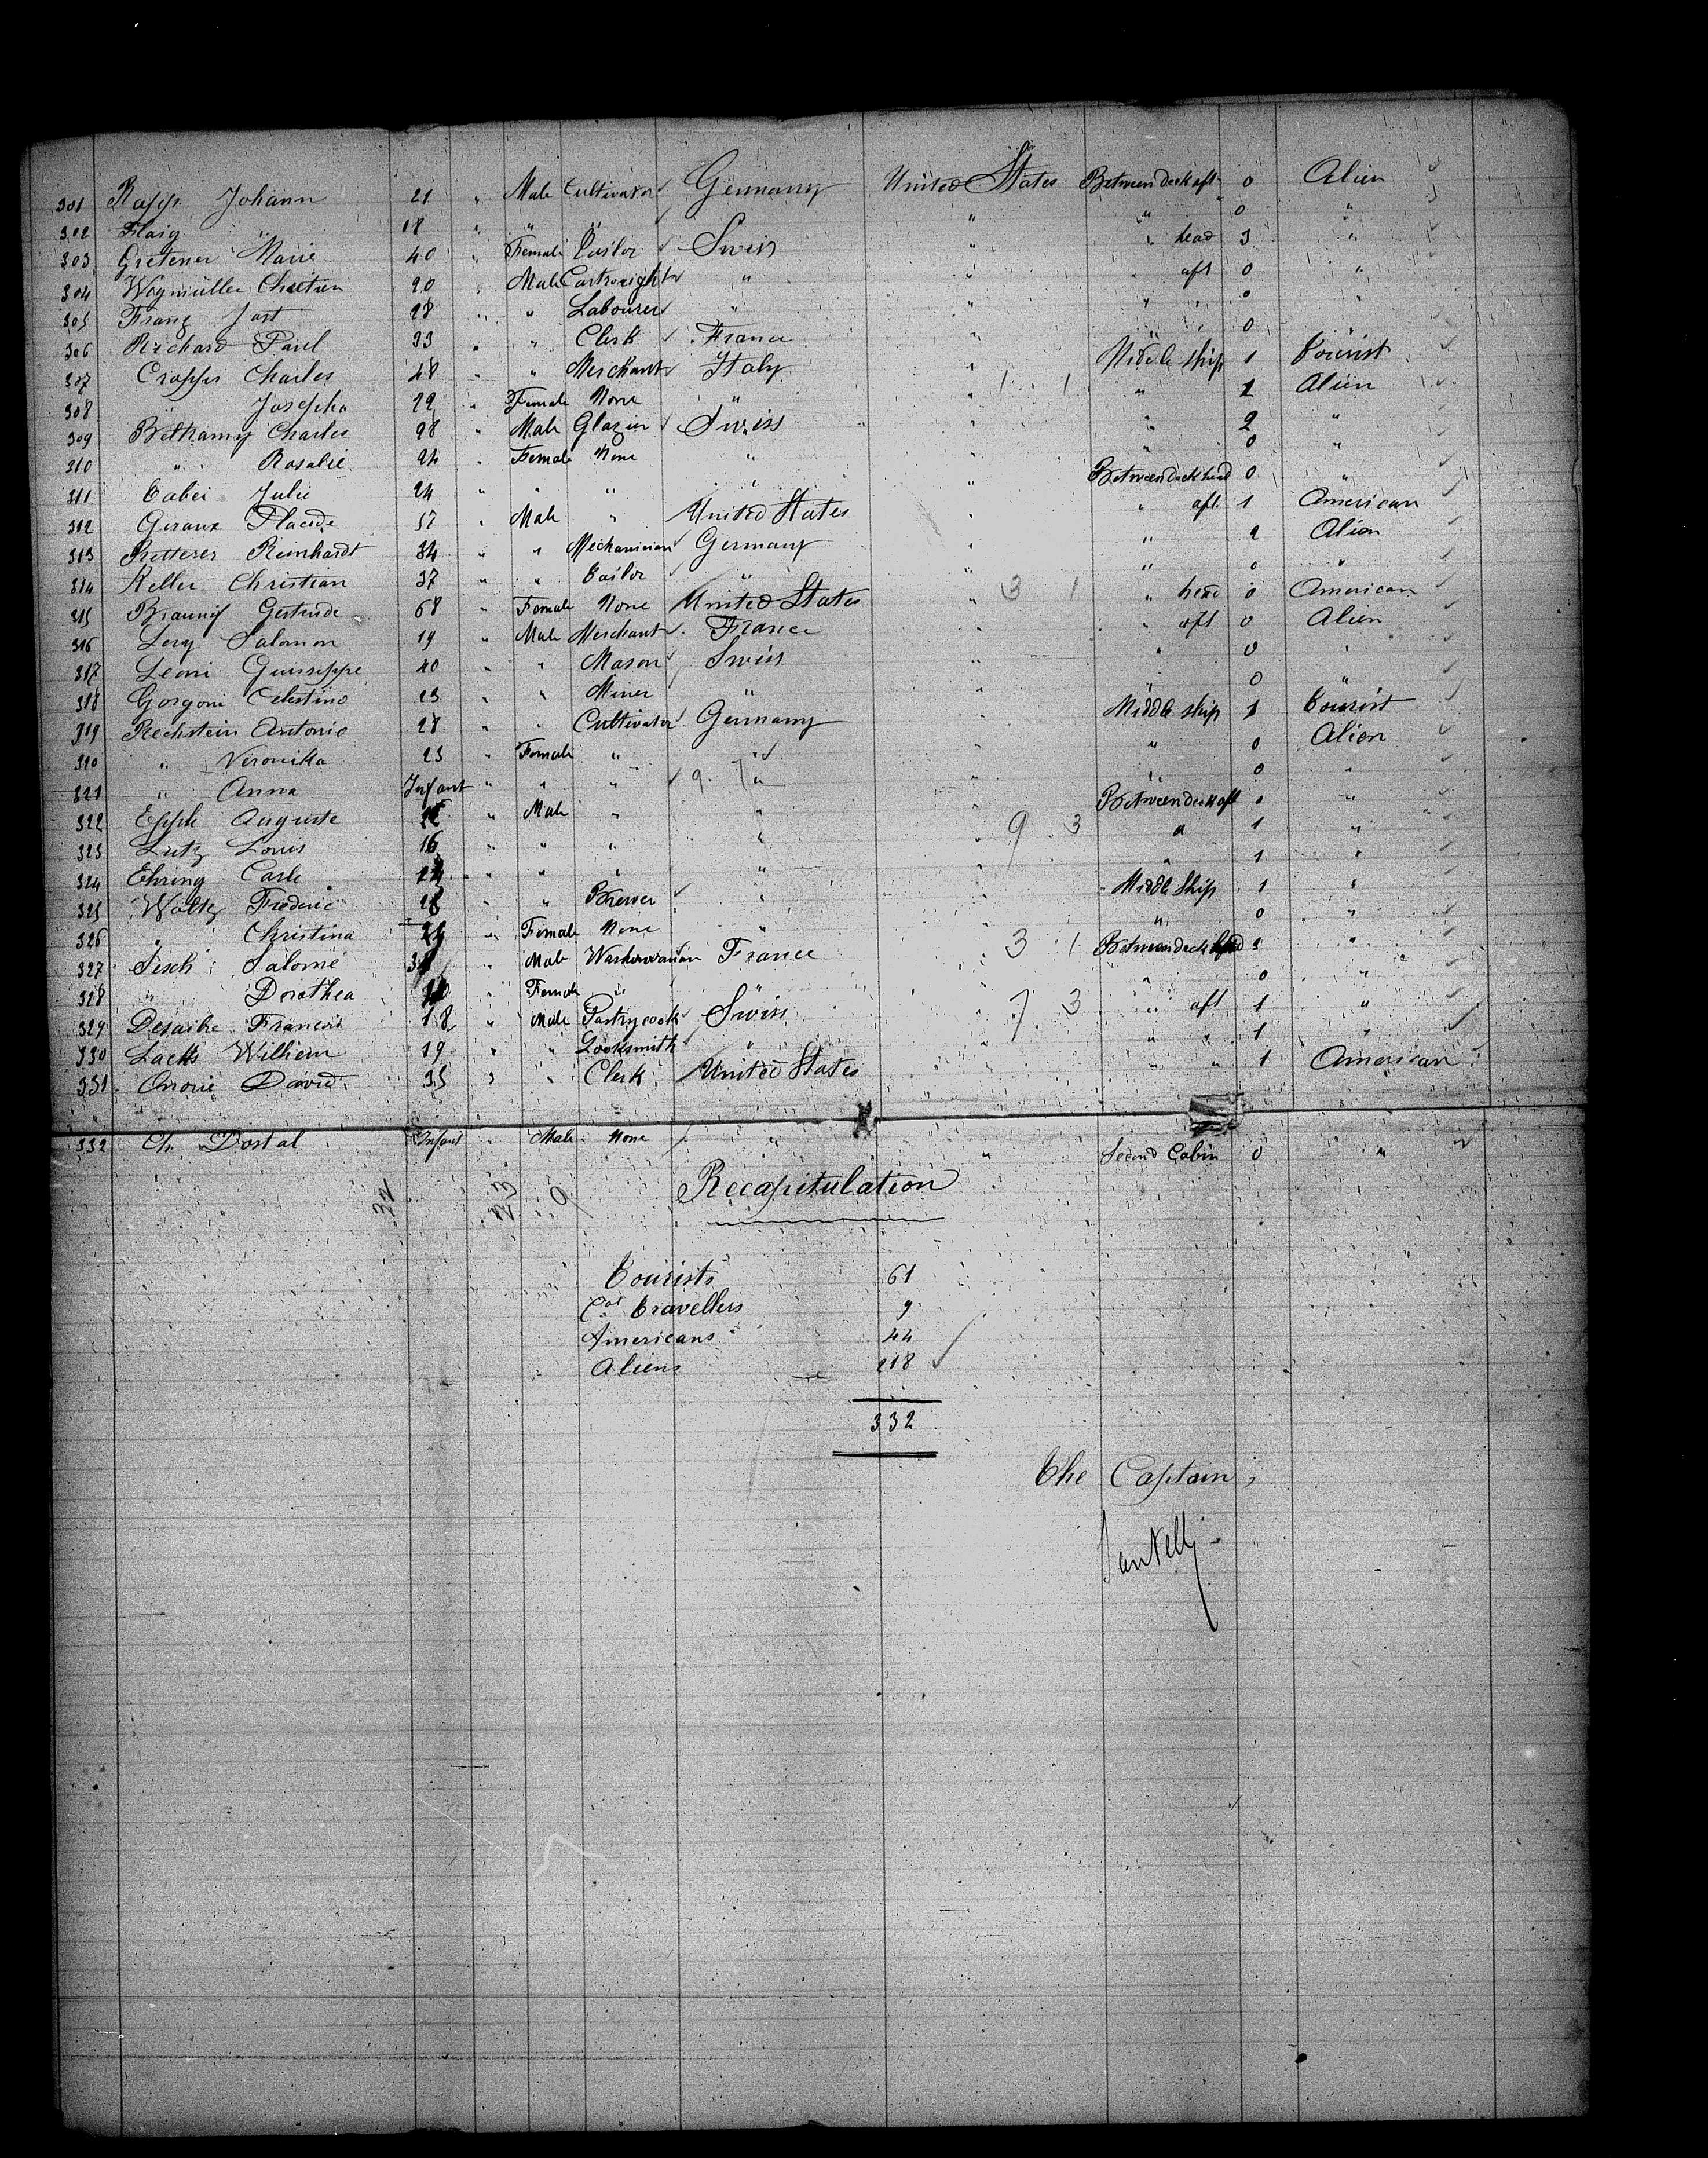 301 Rapp Johann 21 " Male Cultivator Germany United States Between deck aft 0 Alien
302 Flaig " 18 " " " " " " 0 "
303 Gretener Marie 40 " Female Tailor Swiss " " head 3 "
304 Wegmüller Christian 20 " Male Cartwright " " " aft 0 "
305 Franz Jost 28 " " Labourer " " " " 0 "
306 Richard Paul 33 " " Clerk France " " " 0
307 Cropper Charles 48 " " Merchant Italy " Middle ship 1 Tourist
308 " Josepha 22 " Female None " 1 1 " 1 Alien
309 Charles 28 " Male Glazier Swiss " " 2 "
310 " Rosalie 24 " Female None " " " 0 "
311 Julie 24 " " " " " Between deck head 0 "
312 Geraux Placide 57 " Male " United States " " aft 1 American
313 Retterer Reinhardt 34 " " Mechanician Germany " " 2 Alien
314 Keller Christian 37 " " Tailor " " " 0 "
315 Gertrude 68 " Female None United States 3 1 " head 0 American
316 Levy Salomon 19 " Male Merchant France " aft 0 Alien
317 Leoni Guisseppe 40 " " Mason Swiss " " 0 "
318 Gorgoni Celestino 23 " " Miner " " " 0 "
319 Rechstein Antonio 28 " " Cultivator Germany " Middle ship 1 Tourist
310 " Veronika 23 " Female " " " " 0 Alien
321 " Anna Infant " " " 9 7 " " " 0 "
322 Epple Auguste " Male " " " Between deck aft "
323 Lutz Louis 16 " " " " " 9 3 " 1 "
324 Ehring Carle " " " " " " 1 "
325 Woltz Frederic 28 " " Brewer " " Middle Ship 1 "
326 " Christina " Female None " " 0 "
327 Salome " Male Washerwoman France " 3 1 Between deck head "
328 " Dorothea " Female " " " 0 "
329 Francois 18 " Male Pastrycook Swiss 7 3 " aft 1 "
330 Wilhem 19 " " Locksmith " " " " 1 "
331 David 35 " " Clerk United States " " 1 American
332 Ch. Dostal Infant " Male None " " Second Cabin 0 "
32 23 9
Recapitulation
Tourists 61
Cal Travellers 9
Americans 44
Aliens 218
332
The Captain,
Santelli